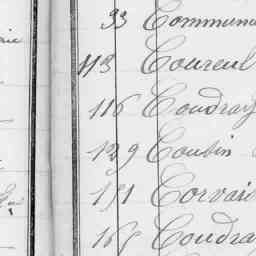 93 Commun
113 Coureul
116 Coudray
129 Coubin
151 Corvais
165 Coudray